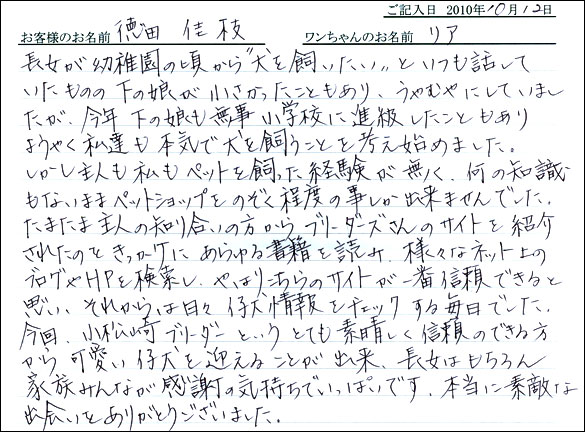 ご記入日 2010年10月12日
お客様のお名前 徳田 佳枝 ワンちゃんのお名前 リア
長女が幼稚園の頃から"犬を飼いたい"といつも話して
いたものの下の娘が小さかったこともあり、うやむやにしていまし
たが、今年下の娘も無事小学校に進級したこともあり
ようやく私達も本気で犬を飼うことを考え始めました。
しかし主人も私もペットを飼った経験が無く、何の知識
もないままペットショップをのぞく程度の事しか出来ませんでした。
たまたま主人の知り合いの方からブリーダーズさんのサイトを紹介
されたのをきっかけにあらゆる書籍を読み、様々なネット上の
ブログやHPを検索し、やはりこちらのサイトが一番信頼できると
思い、それからは日々仔犬情報をチェックする毎日でした。
今回、小松崎ブリーダーというとても素晴しく信頼のできる方
から可愛い仔犬を迎えることが出来、長女はもちろん
家族みんなが感謝の気持ちでいっぱいです。本当に素敵な
出会いをありがとうございました。